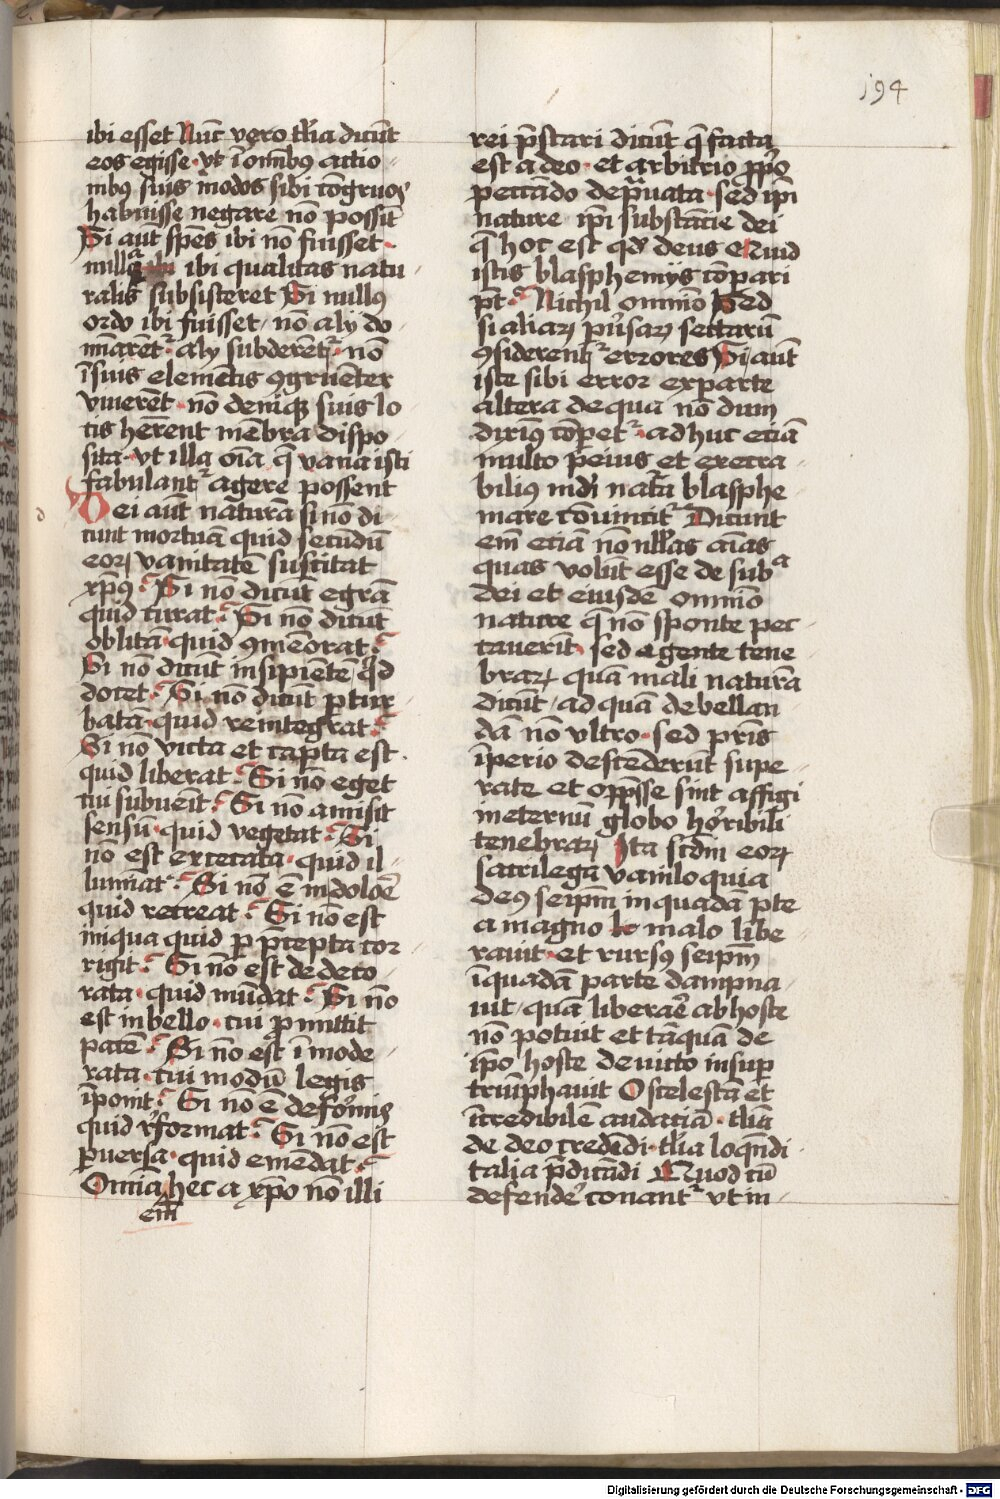 194
ibi esset Nūc vero tl̄ia dicūt
eos egisse · vt ī om̄ibꝰ actio
nibꝰ suis modos sibi cōgruos
habuisse negare nō possūt
Si aūt spēs ibi nō fuisset ·
nulla ibi qualitas natu
ralis subsisteret Si nullꝰ
ordo ibi fuisset / nō alij do
mīarēt᷑ · alij subderēt᷑ · nō
ī suis elemētis ꝯgruēter
viuerēt · nō deniqꝫ suis lo
cis herēnt mēbra dispo
sita · vt illa oīa q̄ vana isti
fabulant᷑ agere possent
Dei aūt naturā si nō di
cunt mortuā quid secūdū
eoꝝ vanitatē suscitat
xp̄ꝰ · Si nō dicūt egrā
quid curat · Si nō dicūt
oblitā · quid ꝯmēorat ·
Si nō dicūt insipiētē qͥd
docet · Si nō dicūt ꝑtur
batā · quid reintegrat ·
Si nō victa et capta est ·
quid liberat · Si nō eget
cui subuēit · Si nō amisit
sensū · quid vegetat · Si
nō est excecata · quid il
lumīat · Si nō ē in doloē
quid recreat · Si nō est
iniqua quid ꝑ p̄cepta cor
rigit · Si nō est dedeco
rata · quid mūdat · Si nō
est in bello · cui ꝓmittit
pacē · Si nō est ī mode
rata · cui modū legis
īponit · Si nō ē deformis
quid rͤformat · Si nō est
ꝑuersa · quid emēdat ·
Omīa hec a xp̄o nō illi
em̄
rei p̄stari dicūt q̄ facta
est a deo · et arbitrio ꝓpͦo
peccādo dep̄uata · sed ip̄i
nature ip̄i substācie dei
q̄ hoc est qd̓ deus Quid
istis blasphemijs cōpari
pt̄ · Nichil omnīo Sed
si aliaꝝ pūsaꝝ sectarū
ꝯsiderent᷑ errores Si aūt
iste sibi error ex parte
altera de qua nō dum
diximꝰ cōpet᷑ · ad huc eciā
multo peius et execra
biliꝰ nadi̓ natūra blasphe
mare cōuincit᷑ Dicunt
em̄ eciā nō nl̄las aīas
quas volūt esse de subᵃ
dei et eiusdē omnīo
nature q̄ nō sponte pec
cauerīt · sed a gente tene
braꝝ quā mali naturā
dicūt / ad quā debellan
dā nō vltro · sed pr̄is
īperio descenderūt supe
rate et opp̄sse sint affigi
in eternū globo horribili
tenebraꝝ Ita scd̄m eoꝝ
sacrilega vaniloquia
deꝰ seip̄m in quadā ꝑte
a magno malo libe
rauit · et rursꝰ seip̄m
ī quadā parte dampna
uit / quā liberaͤ ab hoste
nō potuit et tāquā de
ip̄o hoste deuicto insuꝑ
triūphauit O scelestā et
īcredibilē audaciā · tl̄ia
de deo credēdi · tl̄ia loquēdi ·
talia p̄dicādi Quod cū
defendeͤ conant᷑ vt in
Digitalisierung gefördert durch die Deutsche Forschungsgemeinschaft - DFG